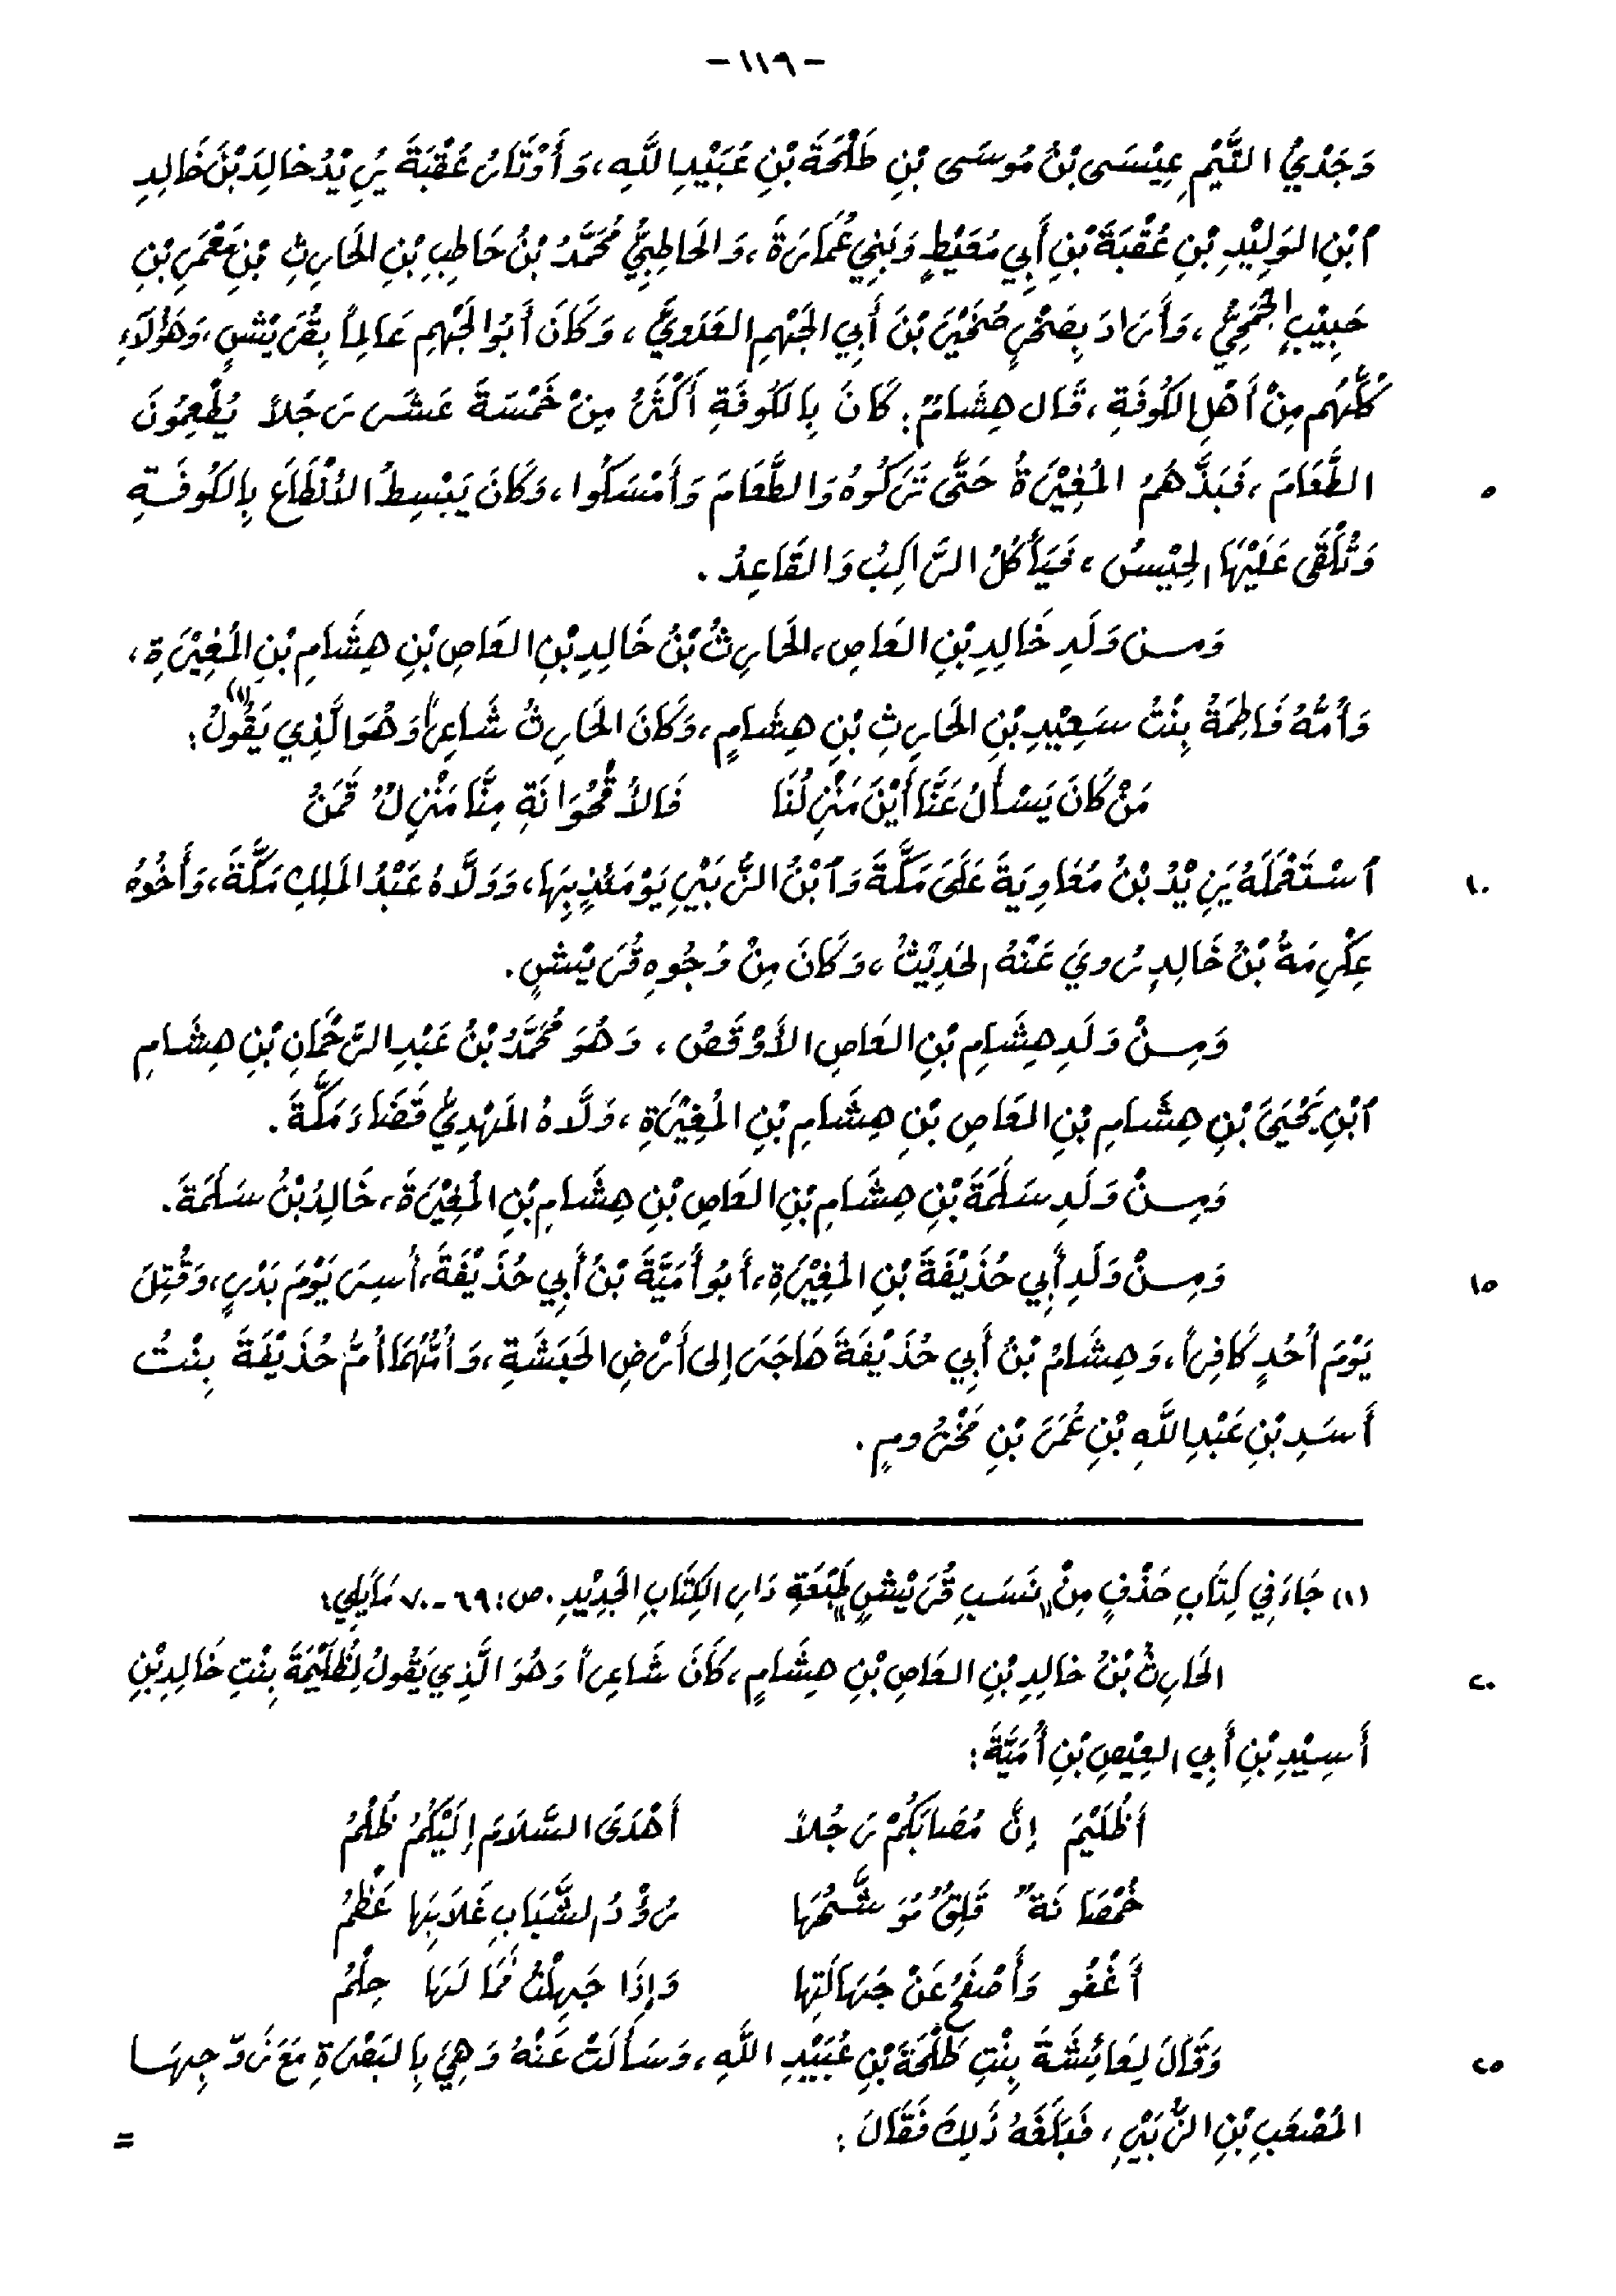 - ١١٩ -
وَجَدْيُ التَّيْمِ عِيْسَى بْنُ مُوسَى بْنِ طَلْحَةَ بْنِ عُبَيْدِ اللَّهِ، وَأَوْتَارُ عُقْبَةَ يُرِيْدُ خَالِدَ بْنَ خَالِدِ
ٱبْنِ الوَلِيْدِ بْنِ عُقْبَةَ بْنِ أَبِي مُعَيْطٍ وَبَنِي عُمَارَةَ، وَالحَاطِبِيُّ مُحَمَّدُ بْنُ حَاطِبِ بْنِ الحَارِثِ بْنِ مَعْمَرِ بْنِ
حَبِيْبٍ الجُمَحِيُّ، وَأَرَادَ بِصَخْرٍ صُخَيْرَ بْنَ أَبِي الجَهْمِ العَدَوِيَّ، وَكَانَ أَبُو الجَهْمِ عَالِماً بِقُرَيْشٍ، وَهَؤُلَاءِ
كُلُّهُم مِنْ أَهْلِ الكُوفَةِ، قَال هِشَامٌ: كَانَ بِالكُوفَةِ أَكْثَرُ مِنْ خَمْسَةَ عَشَرَ رَجُلاً يُطْعِمُونَ
الطَّعَامَ، فَبَذَّهُمُ المُغِيْرَةُ حَتَّى تَرَكُوهُ وَالطَّعَامَ وَأَمْسَكُوا، وَكَانَ يَبْسِطُ الأَنْطَاعَ بِالكُوفَةِ ٥
وَتُلْقَى عَلَيْهَا الحِيْسُ، فَيَأْكُلُ الرَّاكِبُ وَالقَاعِدُ.
وَمِـنْ وَلَدِ خَالِدِ بْنِ العَاصِ، الحَارِثُ بْنُ خَالِدِ بْنِ العَاصِ بْنِ هِشَامِ بْنِ المُغِيْرَةِ،
وَأُمُّهُ فَاطِمَةُ بِنْتُ سَعِيْدِ بْنِ الحَارِثِ بْنِ هِشَامٍ، وَكَانَ الحَارِثُ شَاعِراً وَهْوَ الَّذِي يَقُولُ:(١)
مَنْ كَانَ يَسْأَلُ عَنَّا أَيْنَ مَنْزِلُنَا فَالأُقْحُوَانَةِ مِنَّا مَنْزِلٌ قَمَنُ
ٱسْتَعْمَلَهُ يَزِيْدُ بْنُ مُعَاوِيَةَ عَلَى مَكَّةَ وَٱبْنُ الزُّبَيْرِ يَوْمَئِذٍ بِهَا، وَوَلَّاهُ عَبْدُ المَلِكِ مَكَّةَ، وَأَخُوهُ ١٠
عِكْرِمَةُ بْنُ خَالِدٍ رُويَ عَنْهُ الحَدِيْثُ، وَكَانَ مِنْ وُجُوهِ قُرَيْشٍ.
وَمِـنْ وَلَدِ هِشَامِ بْنِ العَاصِ الأَوْقَصُ، وَهُوَ مُحَمَّدُ بْنُ عَبْدِ الرَّحْمَانِ بْنِ هِشَامِ
ٱبْنِ يَحْيَىَ بْنِ هِشَامِ بْنِ العَاصِ بْنِ هِشَامِ بْنِ المُغِيْرَةِ، وَلَّاهُ المَهْدِيُّ قَضَاءَ مَكَّةَ.
وَمِـنْ وَلَدِ سَلَمَةَ بْنِ هِشَامِ بْنِ العَاصِ بْنِ هِشَامِ بْنِ المُغِيْرَةَ، خَالِدُ بْنُ سَلَمَةَ.
وَمِـنْ وَلَدِ أَبِي حُذَيْفَةَ بْنِ المُغِيْرَةِ، أَبُو أُمَيَّةَ بْنُ أَبِي حُذَيْفَةَ، أُسِرَ يَوْمَ بَدْرٍ، وَقُتِلَ ١٥
يَوْمَ أُحُدٍ كَافِراً، وَهِشَامُ بْنُ أَبِي حُذَيْفَةَ هَاجَرَ إِلى أَرْضِ الحَبَشَةِ، وَأُمُّهُمَا أُمُّ حُذَيْفَةَ بِنْتُ
أَسَدِ بْنِ عَبْدِ اللَّهِ بْنِ عُمَرَ بْنِ مَخْزُومٍ.
(١) جَاءَ فِي كِتَابِ حَذْفٍ مِنْ "نَسَبِ قُرَيْشٍ" طَبْعَةِ دَارِ الكِتَابِ الجَدِيْدِ. ص: ٦٩ - ٧٠ مَايَلِي:
الحَارِثُ بْنُ خَالِدِ بْنِ العَاصِ بْنِ هِشَامٍ، كَانَ شَاعِراً وَهُوَ الَّذِي يَقُولُ لِظُلَيْمَةَ بِنْتِ خَالِدِ بْنِ ٢٠
أَسِيْدِ بْنِ أَبِي العِيْصِ بْنِ أُمَيَّةَ:
أَظُلَيْمَ إِنَّ مُصَابَكُمْ رَجُلاً أَهْدَىَ السَّلَامَ إِلَيْكُمُ ظُلْمُ
خُمْصَانَةٌ قَلِقٌ مُوَشَّحُهَا رُؤْدُ الشَّبَابِ غَلَابِهَا عَظْمُ
أَغْفُو وَأَصْفَحُ عَنْ جَهَالَتِهَا وَإِذَا جَهِلْتُ فَمَا لَهَا حِلْمُ
وَقَالَ لِعَائِشَةَ بِنْتِ طَلْحَةَ بْنِ عُبَيْدِ اللَّهِ، وَسَأَلَتْ عَنْهُ وَهِيَ بِالبَصْرَةِ مَعَ زَوْجِهَا ٢٥
المُصْعَبِ بْنِ الزُّبَيْرِ، فَبَلَغَهُ ذَلِكَ فَقَالَ: =